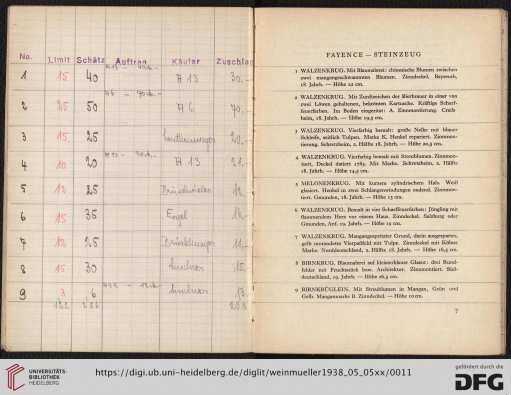 No. Limit Schätz Auftrag Käufer Zuschlag
1 15 40 A 13 30.-
2 25 50 A 6 70.-
3 15 25 20.-
4 10 20 A 13 21.-
5 12 25 12.-
6 15 35 Engel
7 12 25 11.-
8 15 30 15.-
9 3 6
FAYENCE — STEINZEUG
1 WALZENKRUG. Mit Blaumalerei: chinesische Blumen zwischen
zwei mangangeschwammten Bäumen. Zinndeckel. Bayreuth,
18. Jahrh. — Höhe 22 cm.
2 WALZENKRUG. Mit Zunftzeichen der Bierbrauer in einer von
zwei Löwen gehaltenen, bekrönten Kartusche. Kräftige Scharf-
feuerfarben. Im Boden eingeritzt: A. Zinnmontierung. Crails-
heim, 18. Jahrh. — Höhe 19,5 cm.
3 WALZENKRUG. Vierfarbig bemalt: große Nelke mit blauer
Schleife, seitlich Tulpen. Marke K. Henkel repariert. Zinnmon-
tierung. Schrezheim, 2. Hälfte 18. Jahrh. — Höhe 20,5 cm.
4 WALZENKRUG. Vierfarbig bemalt mit Streublumen. Zinnmon-
tiert, Deckel datiert 1785. Mit Marke. Schrezheim, 2. Hälfte
18. Jahrh. — Höhe 14,5 cm.
5 MELONENKRUG. Mit kurzem zylindrischem Hals. Weiß
glasiert. Henkel in zwei Schlangenwindungen endend. Zinnmon-
tiert. Gmunden, 18. Jahrh. — Höhe 15 cm.
6 WALZENKRUG. Bemalt in vier Scharffeuerfarben: Jüngling mit
flammendem Herz vor einem Haus. Zinndeckel. Salzburg oder
Gmunden, Anf. 19. Jahrh. — Höhe 19 cm.
7 WALZENKRUG. Mangangespritzter Grund, darin ausgesparten,
gelb umrandetes Vierpaßfeld mit Tulpe. Zinndeckel mit Kölner
Marke. Norddeutschland, 2. Hälfte 18. Jahrh. — Höhe 16,5 cm.
8 BIRNKRUG. Blaumalerei auf kleisterblauer Glasur: drei Rund-
felder mit Fruchtstück bzw. Architektur. Zinnmontiert. Süd-
deutschland, 19. Jahrh. — Höhe 26,5 cm.
9 BIRNKRÜGLEIN. Mit Streublumen in Mangan, Grün und
Gelb. Manganmarke B. Zinndeckel. — Höhe 10 cm.
7
UNIVERSITÄTS-
BIBLIOTHEK
HEIDELBERG
https://digi.ub.uni-heidelberg.de/diglit/weinmueller1938_05_05xx/0011
gefördert durch die
DFG